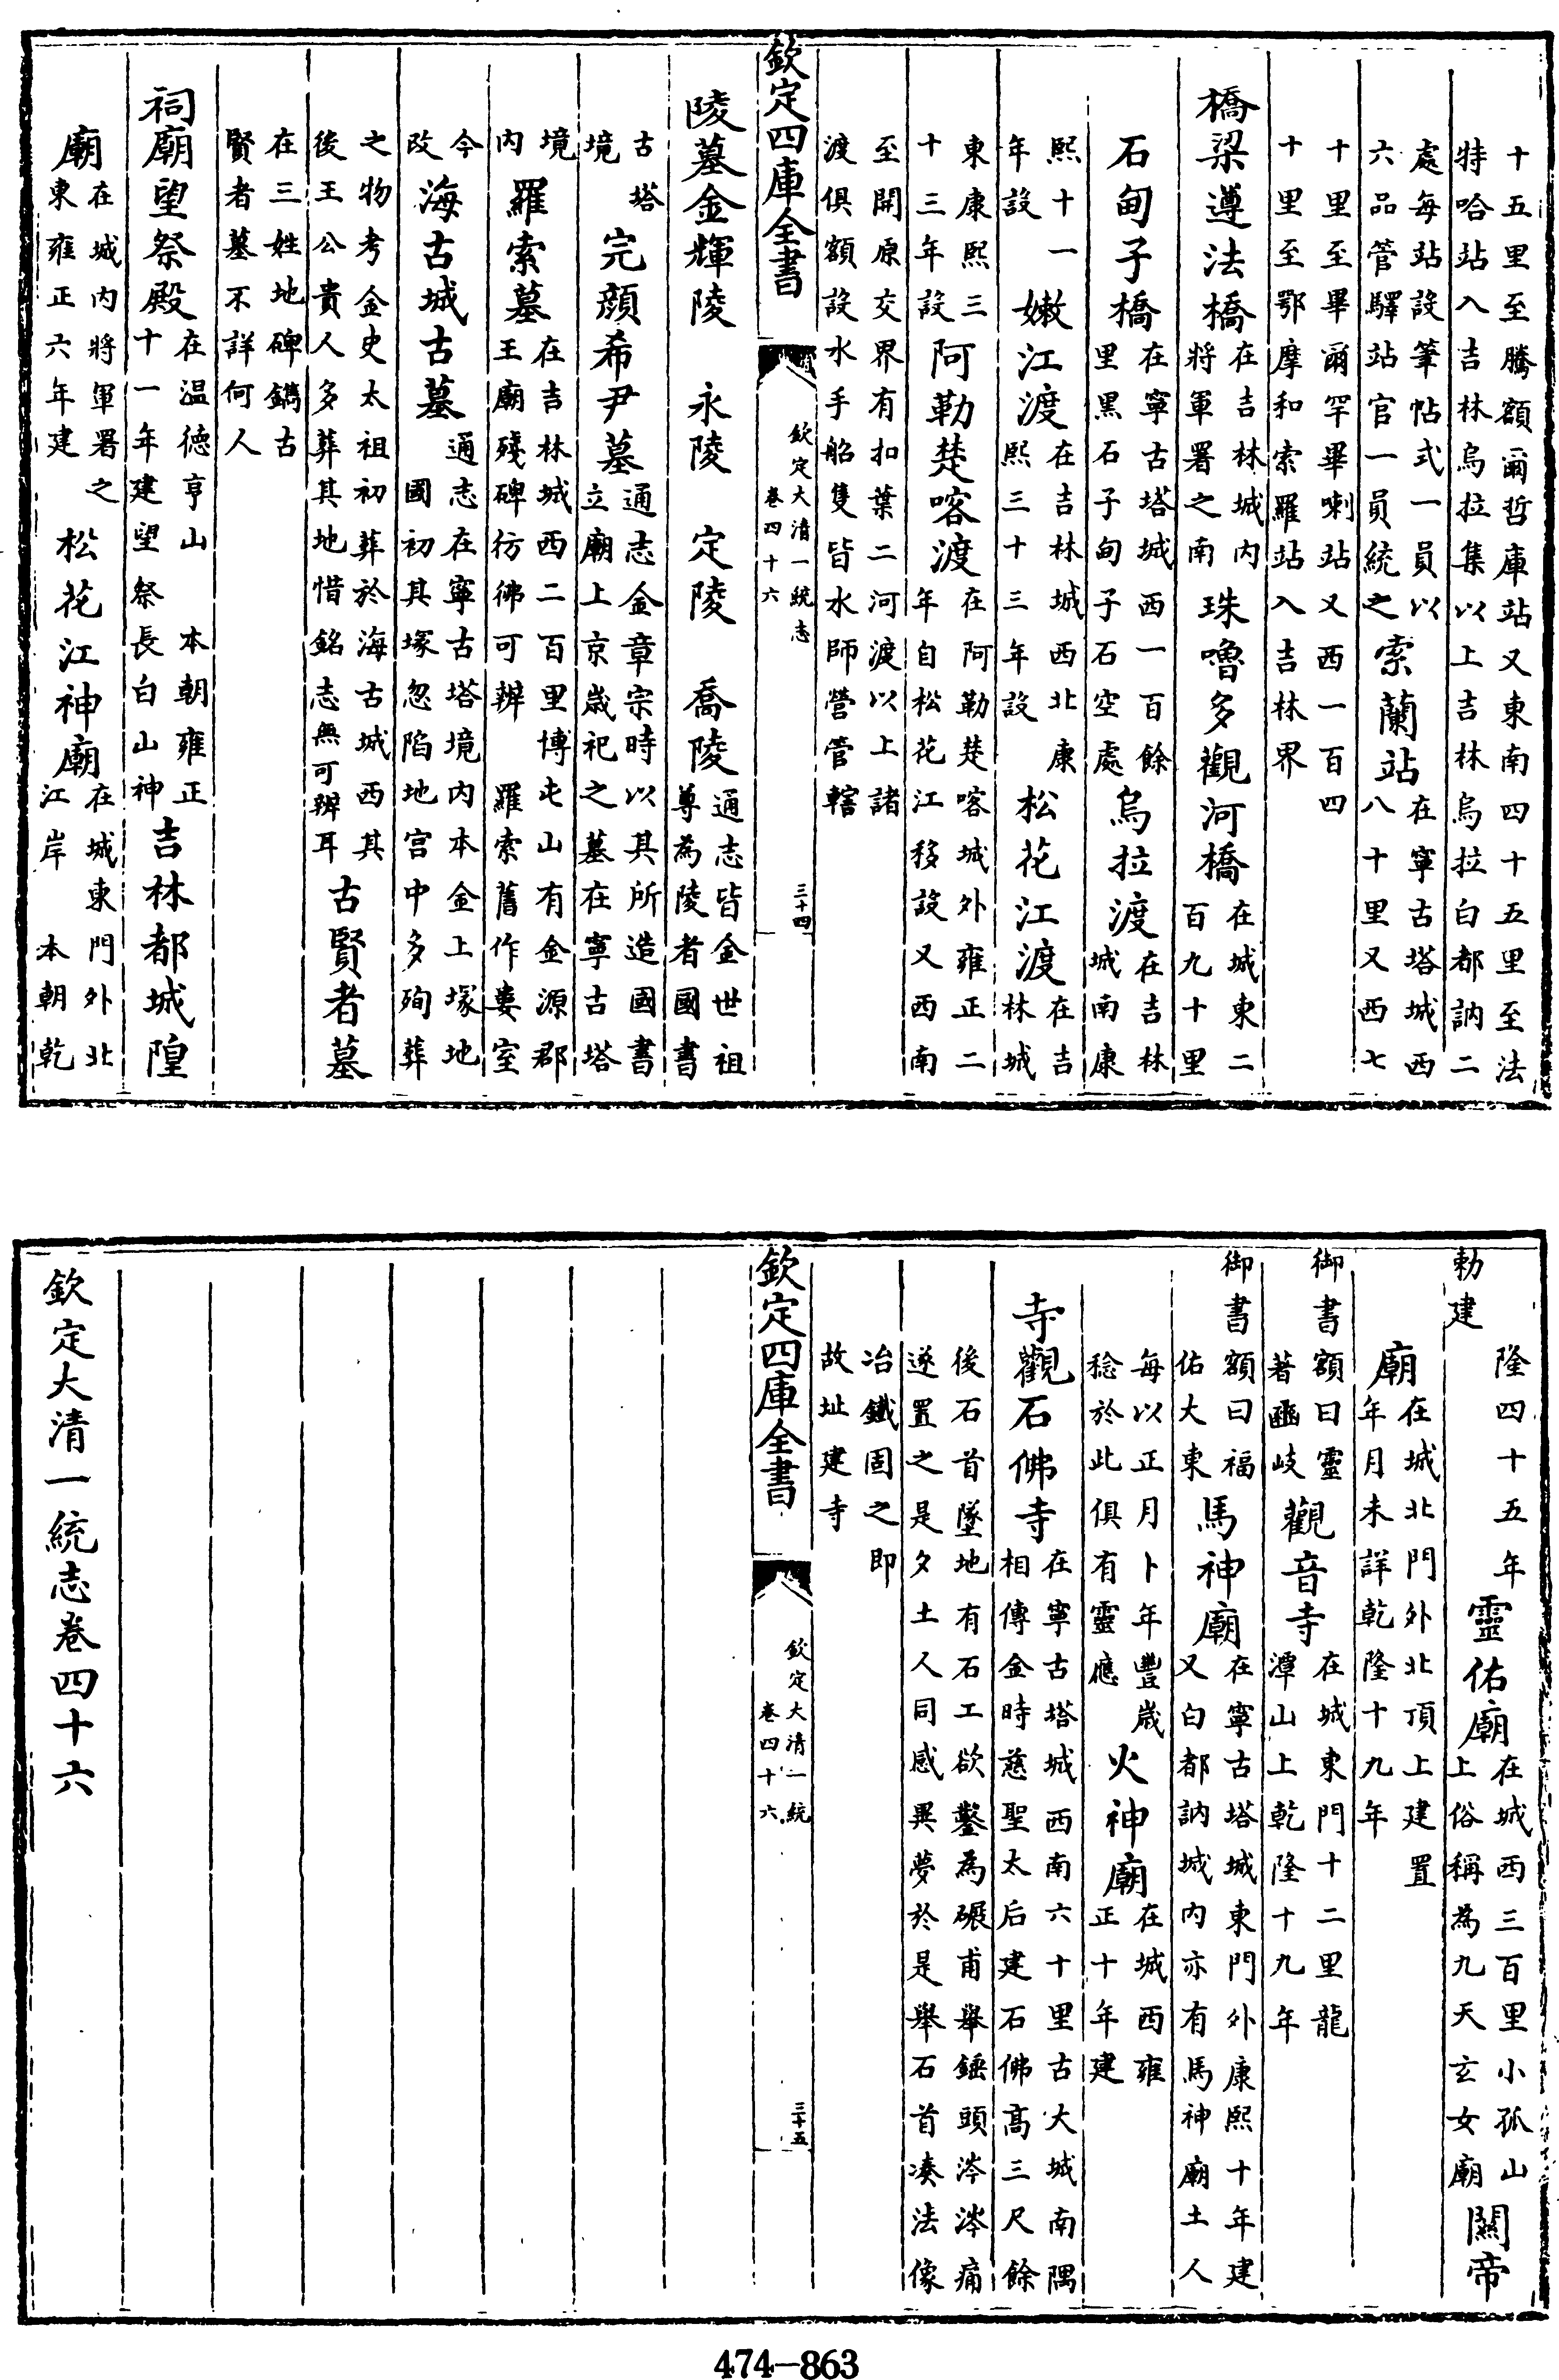 十五里至騰額爾哲庫站又東南四十五里至法
特哈站入吉林烏拉集以上吉林烏拉白都訥二
處每站設筆帖式一員以
六品管驛站官一員統之索蘭站在寧古塔城西
八十里又西七
十里至畢爾罕畢喇站又西一百四
十里至鄂摩和索羅站入吉林界
橋梁遵法橋在吉林城內
將軍署之南珠嚕多觀河橋在城東二
百九十里
石甸子橋在寧古塔城西一百餘
里黑石子甸子石空處烏拉渡在吉林
城南康
熙十一
年設嫩江渡在吉林城西北康
熙三十三年設松花江渡在吉
林城
東康熙三
十三年設阿勒楚喀渡在阿勒楚喀城外雍正二
年自松花江移設又西南
至開原交界有扣葉二河渡以上諸
渡俱額設水手船隻皆水師營管轄
欽定四庫全書
欽定大清一統志
卷四十六
三十四
陵墓金輝陵 永陵 定陵 喬陵通志皆金世祖
尊為陵者國書
古塔
境完顏希尹墓通志金章宗時以其所造國書
立廟上京歲祀之墓在寧古塔
境
內羅索墓在吉林城西二百里博屯山有金源郡
王廟殘碑彷彿可辨 羅索舊作婁室
今
改海古城古墓通志在寧古塔境內本金上塚地
國初其塚忽陷地宮中多殉葬
之物考金史太祖初葬於海古城西其
後王公貴人多葬其地惜銘志無可辨耳古賢者墓
在三姓地碑鐫古
賢者墓不詳何人
祠廟望祭殿在溫德亨山 本朝雍正
十一年建望祭長白山神吉林都城隍
廟在城內將軍署之
東雍正六年建松花江神廟在城東門外北
江岸 本朝乾
隆四十五年
勅建靈佑廟在城西三百里小孤山
上俗稱為九天玄女廟關帝
廟在城北門外北頂上建置
年月未詳乾隆十九年
御書額曰靈
著豳岐觀音寺在城東門十二里龍
潭山上乾隆十九年
御書額曰福
佑大東馬神廟在寧古塔城東門外康熙十年建
又白都訥城內亦有馬神廟土人
每以正月卜年豐歲
稔於此俱有靈應火神廟在城西雍
正十年建
寺觀石佛寺在寧古塔城西南六十里古大城南隅
相傳金時慈聖太后建石佛高三尺餘
後石首墜地有石工欲鑿為碾甫舉錘頭涔涔痛
遂置之是夕土人同感異夢於是舉石首湊法像
冶鐵固之即
故址建寺
欽定四庫全書
欽定大清一統
卷四十六
三十五
欽定大清一統志卷四十六
474-863